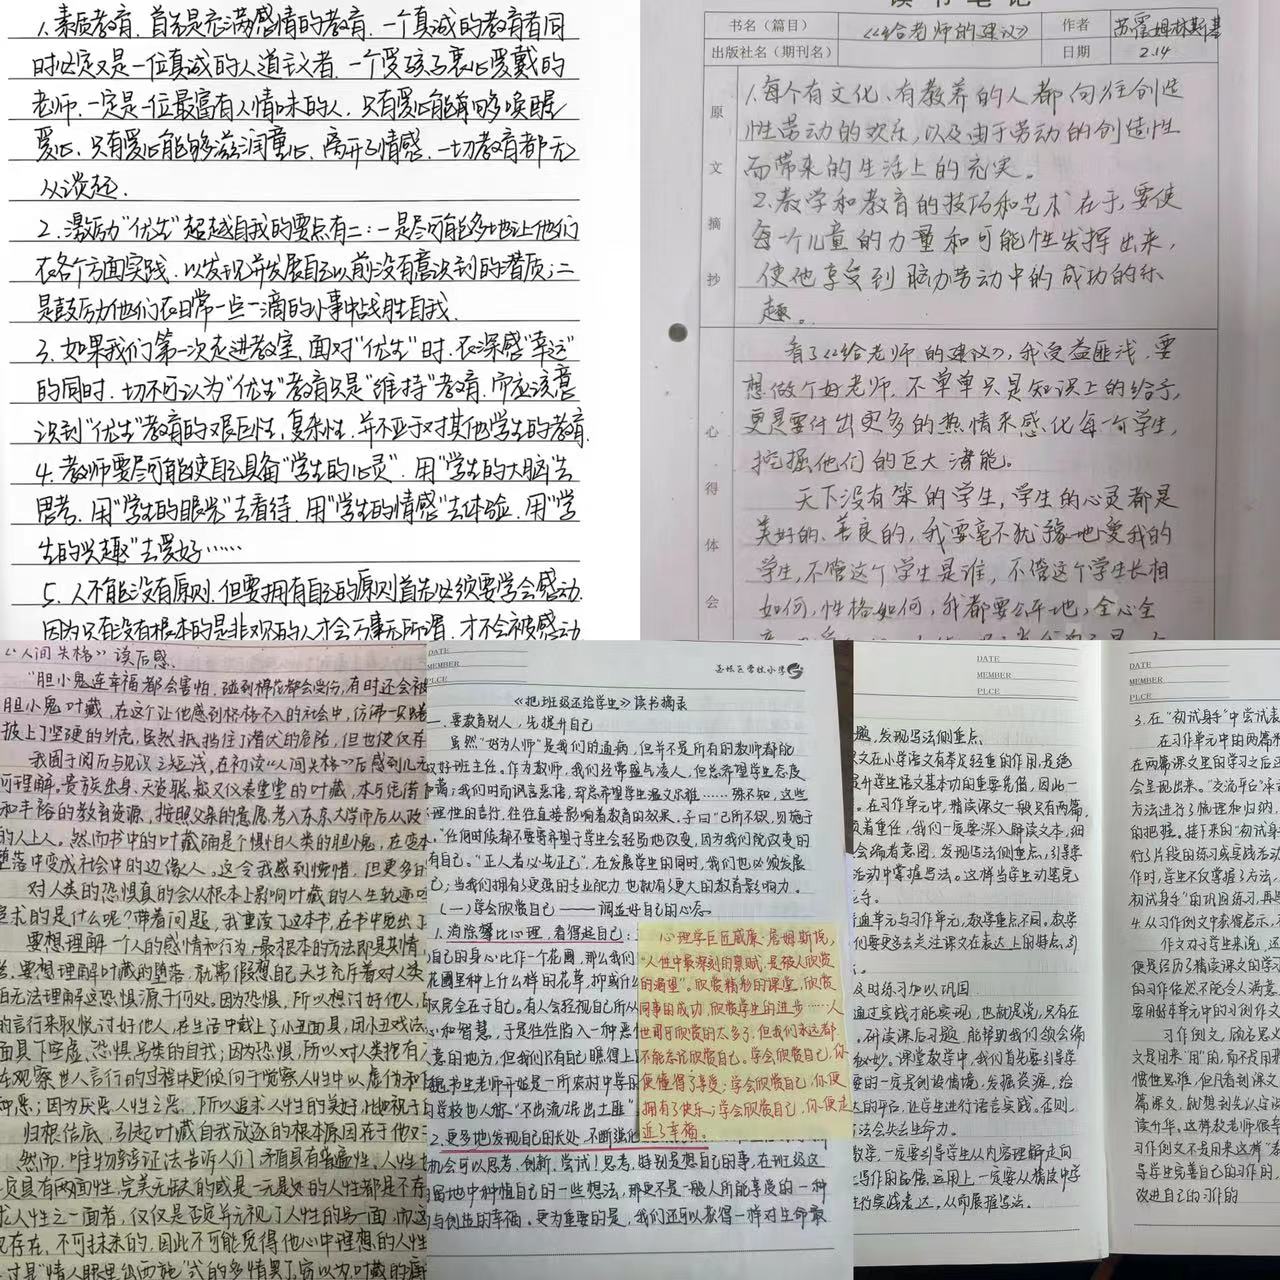 1.素质教育,首先是充满感情的教育,一个真诚的教育者同
时必定又是一位真诚的人道主义者,一个受孩子衷心爱戴的
老师,一定是一位最富有人情味的人,只有爱心能够唤醒
爱心,只有爱心能够滋润童心,离开了情感,一切教育都无
从谈起.
2.激励“优生”超越自我的要点有二:一是尽可能多地让他们
在各个方面实践,以发现并发展自己以前没有意识到的潜质;二
是鼓励他们在日常一点一滴的小事中战胜自我.
3.如果我们第一次走进教室,面对“优生”时,在深感“幸运”
的同时,切不可认为“优生”教育只是“维持”教育,而应该意
识到“优生”教育的艰巨性、复杂性,并不亚于对其他学生的教育.
4.教师要尽可能使自己具备“学生的心灵”,用“学生的大脑”去
思考,用“学生的眼光”去看待,用“学生的情感”去体验,用“学
生的兴趣”去爱好……
5.人不能没有原则,但要拥有自己的原则首先必须要学会感动
因为只有没有根本的是非观的人才会万事无所谓,才不会被感动
读书笔记
书名(篇目) 《给老师的建议》 作者 苏霍姆林斯基
出版社名(期刊名) 日期 2.14
原文摘抄
1.每个有文化、有教养的人都向往创造
性劳动的欢乐,以及由于劳动的创造性
而带来的生活上的充实。
2.教学和教育的技巧和艺术在于,要使
每一个儿童的力量和可能性发挥出来,
使他享受到脑力劳动中的成功的乐
趣。
心得体会
看了《给老师的建议》,我受益匪浅,要
想做个好老师,不单单只是知识上的给予,
更是要付出更多的热情来感化每一个学生,
挖掘他们的巨大潜能。
天下没有笨的学生,学生的心灵都是
美好的、善良的,我要毫不犹豫地爱我的
学生,不管这个学生是谁,不管这个学生长相
如何,性格如何,我都要公平地,全心全
《人间失格》读后感.
“胆小鬼连幸福都会害怕,碰到棉花都会受伤,有时还会被
胆小鬼叶藏,在这个让他感到格格不入的社会中,仿佛一只
披上了坚硬的外壳,虽然抵挡住了潜伏的危险,但也使仅存
我囿于阅历与见识之短浅,在初读《人间失格》后感到几
可理解。贵族出身、天资聪颖又仪表堂堂的叶藏,本与凭借
和丰裕的教育资源,按照父亲的意愿考入东京大学而后从政
的人上人。然而书中的叶藏确是个惧怕人类的胆小鬼,在
堕落中变成社会中的边缘人,这令我感到惋惜,但更多的
对人类的恐惧真的会从根本上影响叶藏的人生轨迹
求的是什么呢?带着问题,我重读了这本书,在书中
要想理解一个人的感情和行为,最根本的方法即具其情
要想理解叶藏的堕落,就需假想自己天生充斥着对人类
无法理解这恐惧源于何处。因为恐惧,所以想讨好他人,
的言行来取悦讨好他人,在生活中戴上了小丑面具,用小丑戏法
面具下空虚、恐惧、
在观察世人言行的过程中更倾向于觉察人性中以虚伪和
恶;因为厌恶人性之恶,所以追求人性的美好,
归根结底,引起叶藏自我放逐的根本原因在于他
然而,唯物辩证法告诉人们:矛盾具有普遍性。人性
具有两面性,完美无缺的或是一无是处的人性都是不存
人性之一面者,仅仅是否定并无视了人性的另一面,而
存在、不可抹杀的,因此不可能觅得他心中理想的人性
DATE
MEMBER
PLCE
《把班级还给学生》读书摘录
一、要教育别人,先提升自己
虽然“好为人师”是我们的通病,但并不是所有的教师都能
好班主任。作为教师,我们经常盛气凌人,但总希望学生态度
我们时而讽言恶语,却总希望学生温文尔雅……殊不知,这些
理性的言行,往往直接影响着教育的效果。子曰“己所不欲,勿施于
“任何时候都不要寄希望于学生会轻易地改变,因为我们能改变的
有自己。”“正人者必先正己”,在发展学生的同时,我们也必须发展
己;当我们拥有了更强的专业能力,也就有了更大的教育影响力。
(一)学会欣赏自己——调适好自己的心态.
1.消除攀比心理,看得起自己:
自己的身心比作一个花圃,那么我们
花圃里种上什么样的花草,抑或什么
完全在于自己。有人会轻视自己所从
和智慧,于是往往陷入一种恶
意的地方,但我们只有自己瞧得上
书生老师开始是一所农村中学
学校也人称“不出流氓出土匪”
2.更多地发现自己的长处,不断强化
机会可以思考、创新、尝试!思考,特别是想自己的事,在班级这
留地中种植自己的一些想法,那更不是一般人所能享受的一种
与创造的幸福。更为重要的是,我们还可以获得一样对生命最
心理学巨匠威廉·詹姆斯说,
“人性中最深刻的禀赋,是被人欣赏
的渴望”。欣赏精彩的课堂,欣赏
同事的成功,欣赏学生的进步……人
世间可欣赏的太多了,但我们永远都
不能忘记欣赏自己。学会欣赏自己,你
便懂得了尊爱;学会欣赏自己,你便
拥有了快乐;学会欣赏自己,你便走
近了幸福。
DATE
MEMBER
PLCE
题,发现写法侧重点.
文在小学语文有举足轻重的作用,是绝
升学生语文基本功的重要凭借,因此一
在习作单元中,精读课文一般只有两篇,
着重任,我们一定要深入解读文本,细
会编者意图,发现写法侧重点,引导学
活动中掌握写法。这样当学生动笔完
通单元与习作单元,教学重点不同。教学
们要更多去关注课文在表达上的特点,引
及时练习加以巩固
通过实践才能实现,也就是说,只有在
研读课后习题,能帮助我们领会编
秘妙。课堂教学中,我们首先要引导学
要的一定是创设情境、发掘资源,给
的平台,让学生进行语言实践。否则,
方法会失去生命力。
教学,一定要引导学生从内容理解走向
写作的品悟、运用上,一定要从精读中学
行实践表达,从而展推写法。
DATE
MEMBER
PLCE
3.在“初试身手”中尝试表
在习作单元中的两篇
在两篇课文里的学习之后
会呈现出来。“交流平台”
方法进行了梳理和归纳,
的把握。接下来的“初试身
行了片段的练习或实践活动
作时,学生不仅掌握了方法,
初试身手”的巩固练习,再
4.从习作例文中获得点示,
作文对于学生来说,
便是经历了精读课文的学习
的习作依然不能令人满意
要用好本单元中的习作例文
习作例文,顾名思义
文是用来“用”的,而不是用来
惯性思维,但凡看到课文
篇课文,就想到先认字读
读升华。这样教老师很辛
习作例文不是用来这样“教
导学生完善自己的习作的,
改进自己的习作的